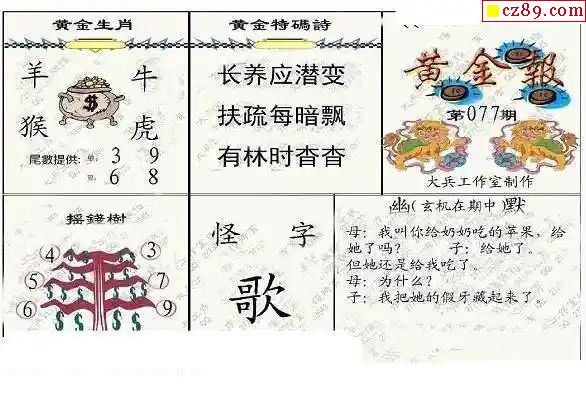 cz89.com
黄金生肖
羊 牛
猴 虎
尾數提供: 单: 3 9
双: 6 8
黄金特碼詩
长养应潜变
扶疏每暗飘
有林时杳杳
黄金報
第077期
大兵工作室制作
摇錢樹
5 3
4 7
6 9
怪 字
歌
幽(玄机在期中)默
母: 我叫你给奶奶吃的苹果, 给
她了吗? 子: 给她了。
但她还是给我吃了。
母: 为什么?
子: 我把她的假牙藏起来了。